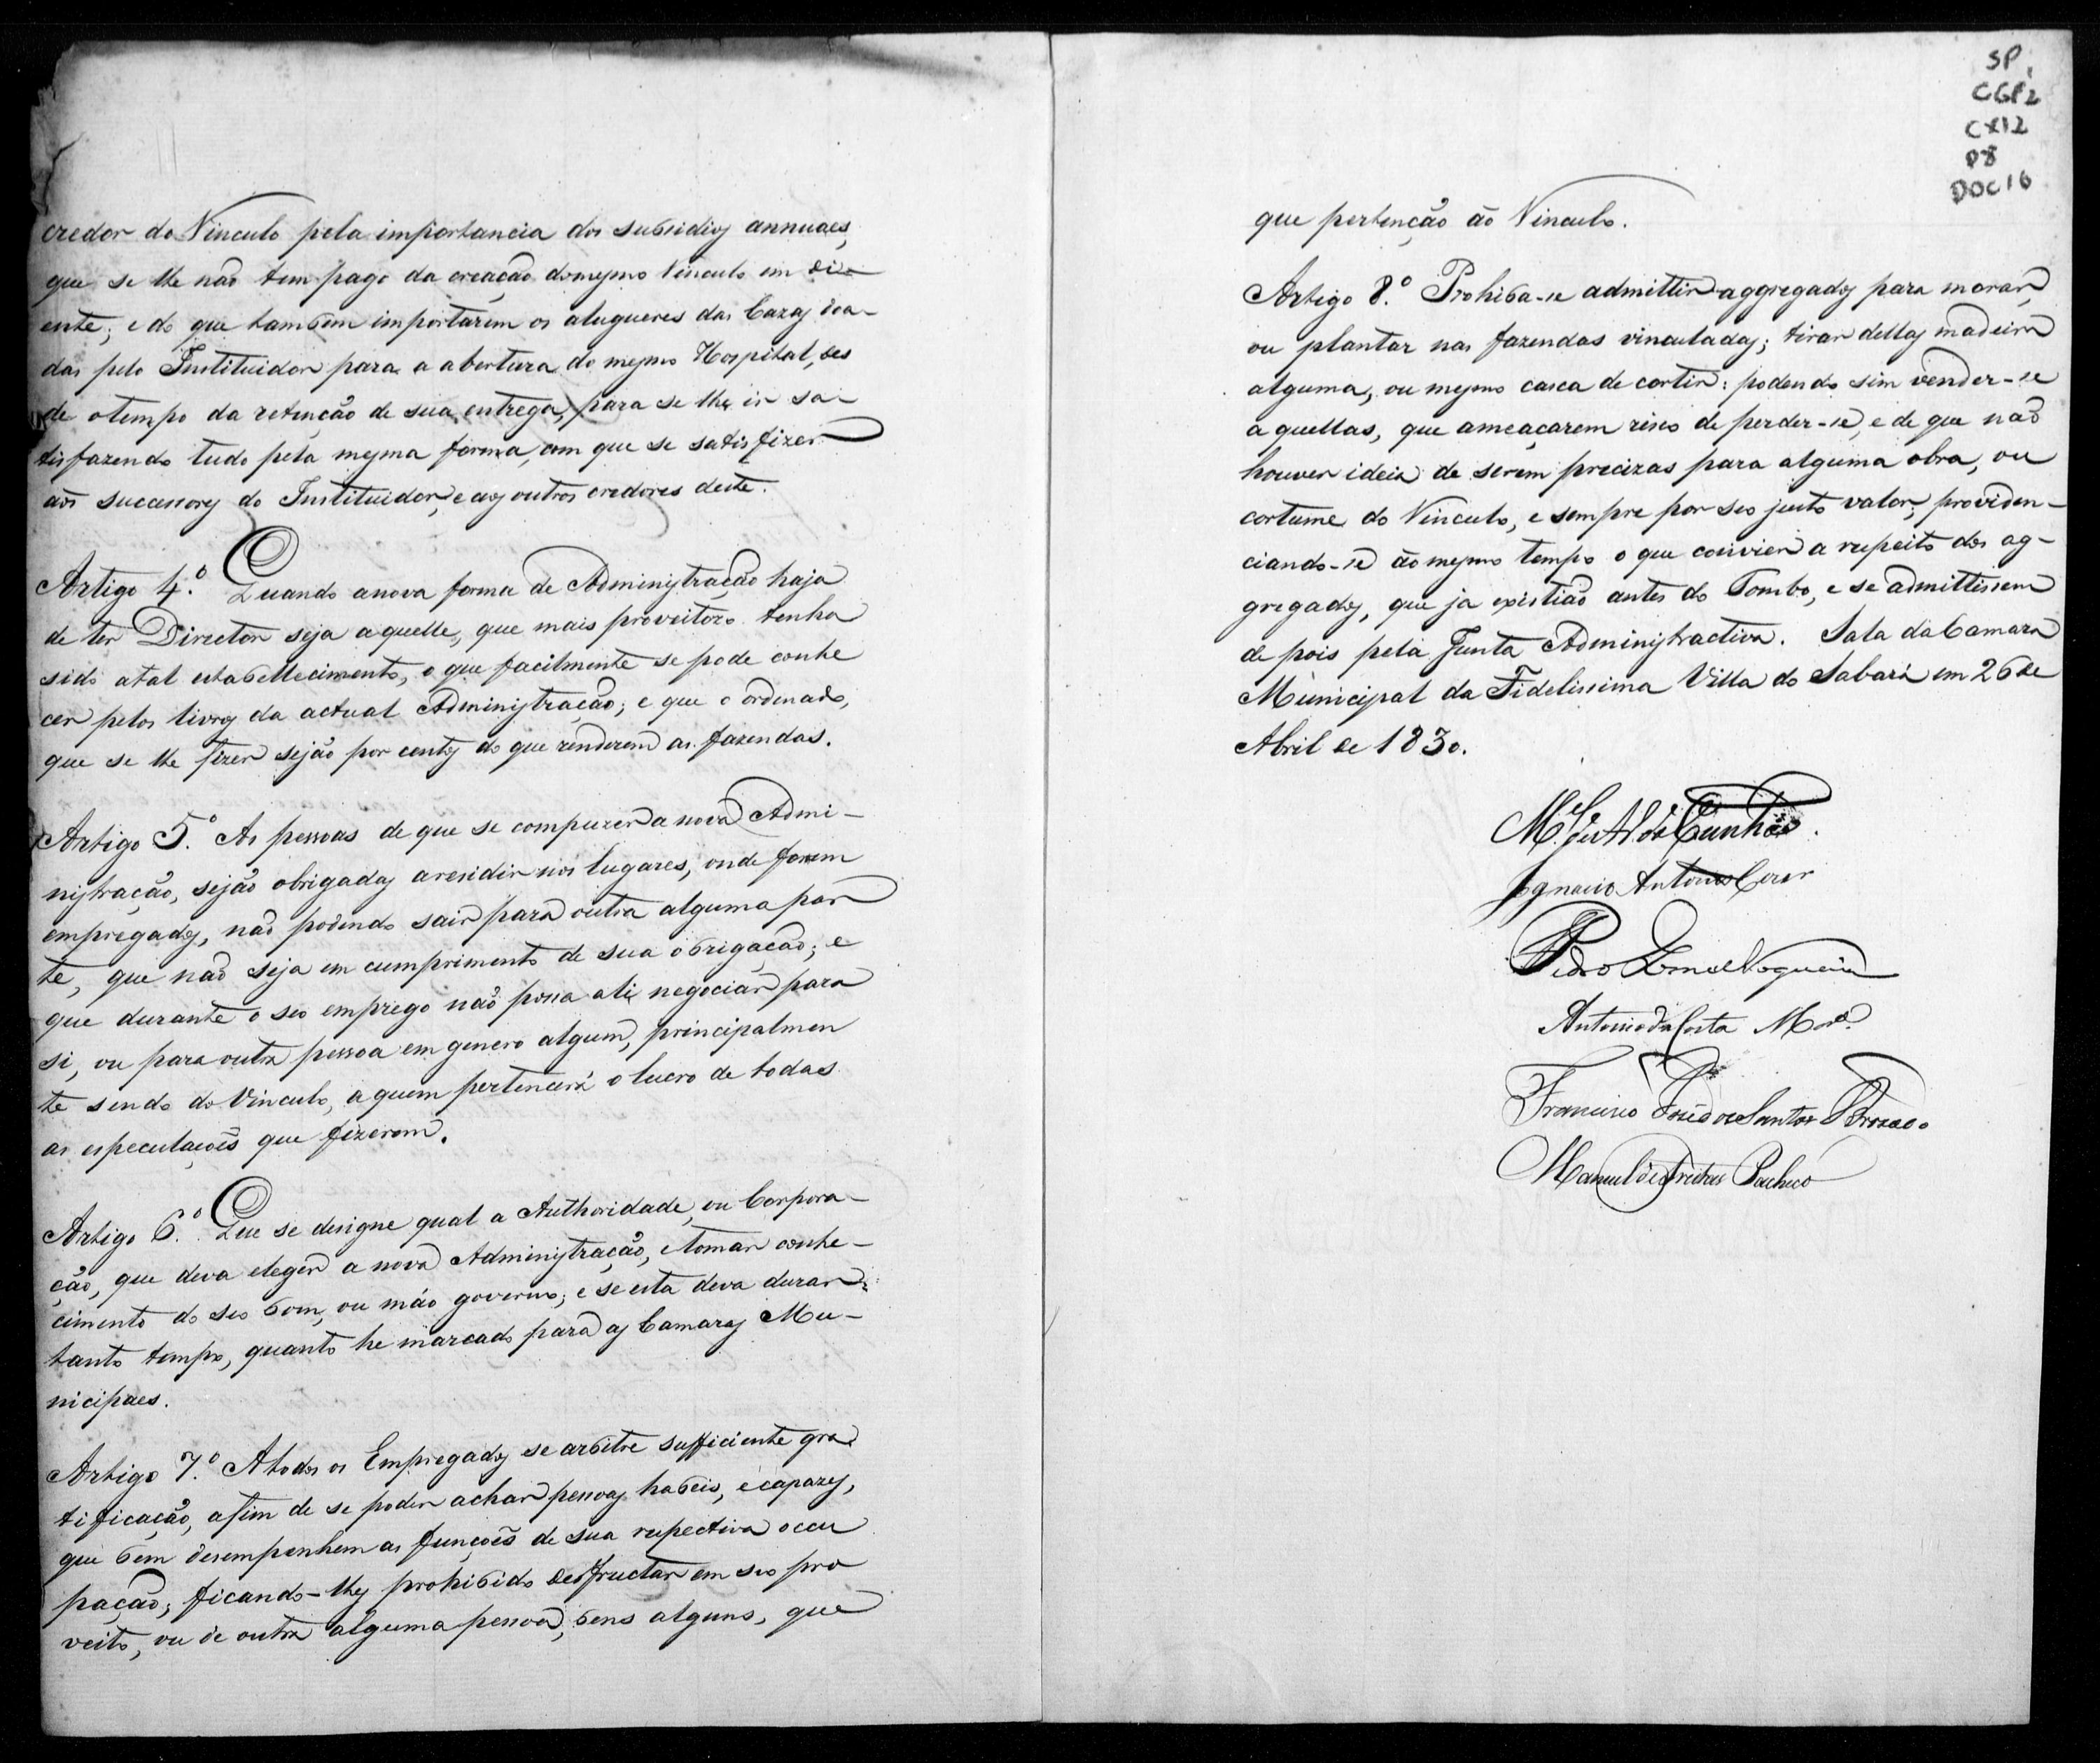 credor do Vinculo pela importancia dos subsidios annuaes,
que se lhe não tem pago da creação do mesmo Vinculo em di-
ente; e do que tambem importarem os alugueres das Cazas doa-
das pelo Instituidor para a abertura do mesmo Hospital, des
de o tempo da retenção de sua entrega, para se lhe ir sa-
tisfazendo tudo pela mesma forma, com que se satisfizer
aos successores do Instituidor, e aos outros credores deste.
Artigo 4.º Quando a nova forma de Administração haja
de ter Director seja aquelle, que mais proveitozo tenha
sido a tal estabellecimento, o que facilmente se pode conhe
cer pelos livros da actual Administração; e que o ordenado,
que se lhe fizer sejão por centos do que renderem as fazendas.
Artigo 5.º As pessoas de que se compuzer a nova Admi-
nistração, sejão obrigadas a residir nos lugares, onde forem
empregados, não podendo sair para outra alguma par
te, que não seja em cumprimento de sua obrigação; e
que durante o seo emprego não possa ali negociar para
si, ou para outra pessoa em genero algum, principalmen
te sendo do Vinculo, a quem pertencerá o lucro de todas
as especulaçoẽs que fizerem.
Artigo 6.º Que se designe qual a Authoridade, ou Corpora-
ção, que deva eleger a nova Administração, e tomar conhe-
cimento do seo bom, ou máo governo; e se esta deva durar
tanto tempo, quanto he marcado para as Camaras Mu-
nicipaes.
Artigo 7.º A todos os Empregados se arbitre sufficiente gra
tificação, afim de se poder achar pessoas habeis, e capazes,
que bem desempenhem as funçoẽs de sua respectiva occu
pação; ficando-lhes prohibido desfructar em seo pro
veito, ou de outra alguma pessoa, bens alguns, que
SP
CGP2
CX12
P8
DOC16
que pertenção áo Vinculo.
Artigo 8.º Prohiba-se admittir aggregados para morar,
ou plantar nas fazendas vinculadas; tirar dellas madeira
alguma, ou mesmo casca de cortir: podendo sim vender-se
aquellas, que ameaçarem risco de perder-se, e de que não
houver ideia de serem precizas para alguma obra, ou
cortume do Vinculo, e sempre por seo justo valor; providen-
ciando-se áo mesmo tempo o que convier a respeito dos ag-
gregados, que ja existião antes do Tombo, e se admittissem
depois pela Junta Administractiva. Sala da Camara
Municipal da Fidelissima Villa do Sabará em 26 de
Abril de 1830.
Cunha
Ignacio Antonio Cezar
Pedro Gomes Nogueira
Antonio da Costa Mor.ª
Francisco José dos Santos Brochado
Manuel de Freitas Pacheco